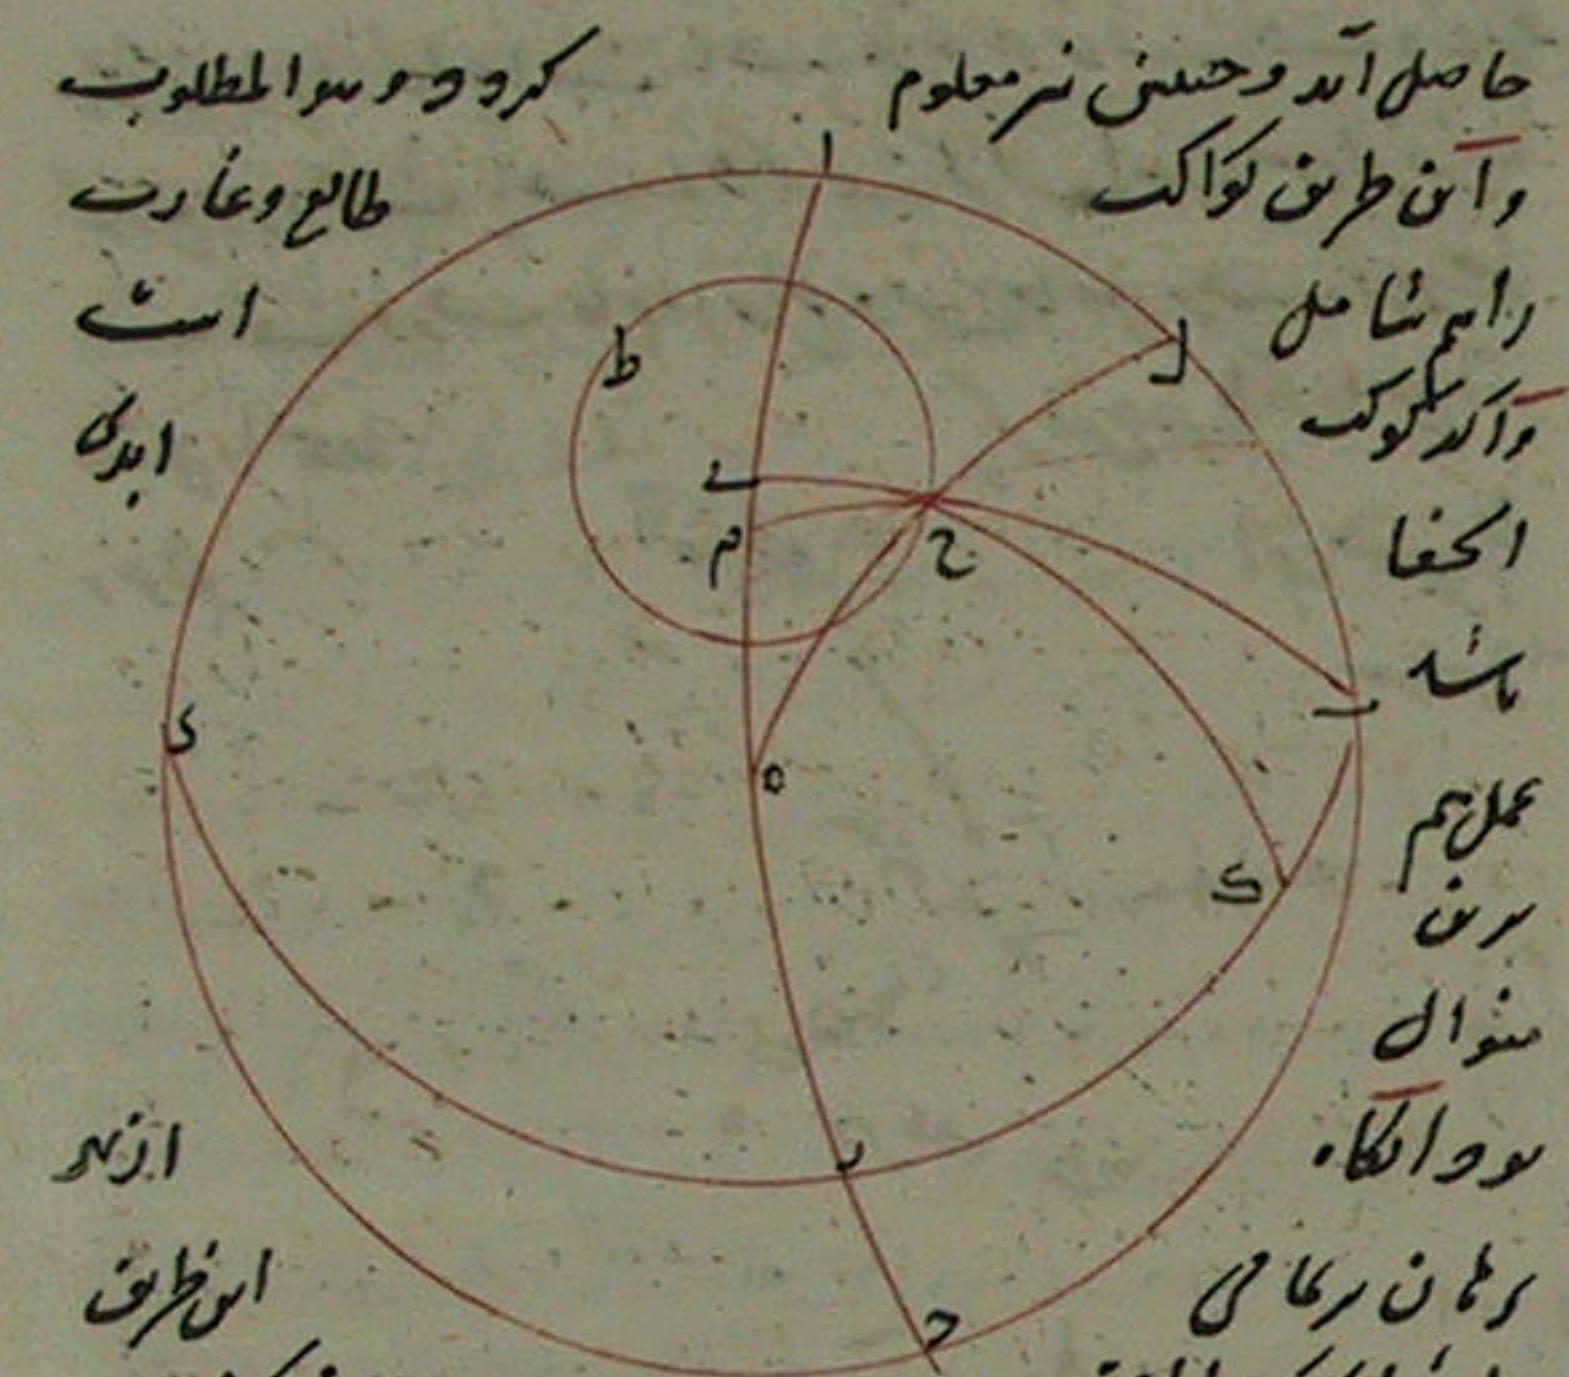 حاصل آید و جیبش نیز معلوم کردد و هو المطلوب
و این طریق کواکب طالع و غارب
را هم شامل است
و اکر کوکب ابدی
الخفا
باشد
عمل هم
برین
منوال
بود آنکاه
از بهر
برهان
این طریق
ا
ط
ل
ی
م
ح
ب
د
ه
ک
ر
ج